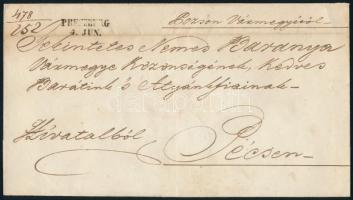 478
252
PRESSBURG
3. JUN.
Pozson Vármegyétől
Tekintetes Nemes Baranya
Vármegye Közönségének, Kedves
Barátink 's Atyánkfiainak
Hivatalból
Pécsen